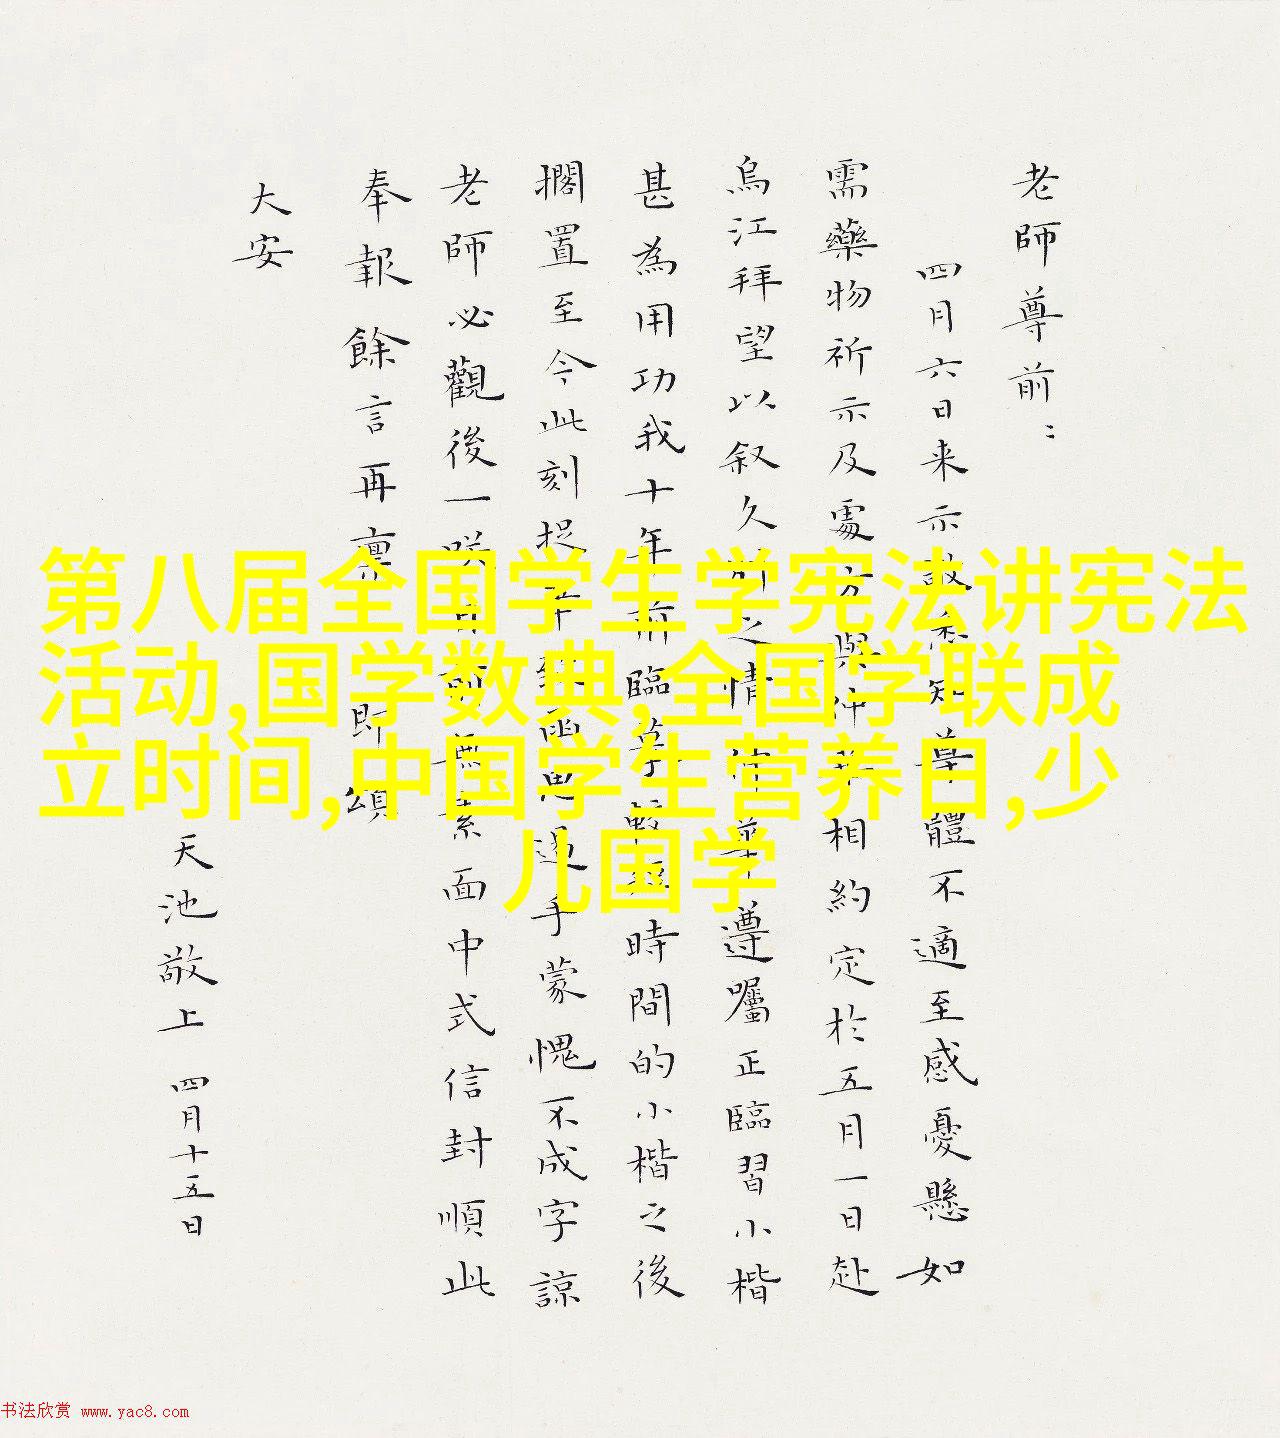 老師尊前：
四月六日来示敬悉知尊體不適至感憂懸如
需藥物祈示及處方與仲 相約定於五月一日赴
烏江拜望以叙久别之情 尊遵囑正臨習小楷
甚為用功我十年前臨 時間的小楷之後
擱置至今此刻捉 手蒙愧不成字諒
老師必觀後一咲 無素面中式信封順此
奉報餘言再禀即頌
大安
天池敬上 四月十五日
第八届全国学生学宪法讲宪法
活动,国学数典,全国学联成
立时间,中国学生营养日,少
儿国学
书法欣赏 www.yac8.com